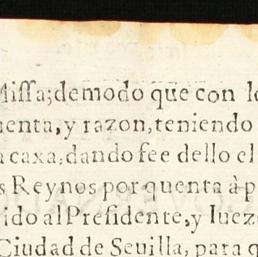 Missa;demodo que con lo
uenta,y razon,teniendo
a caxa,dando fee dello el
s Reynos por quenta à p
ido al Presidente,y Iuez
Ciudad de Seuilla, para q